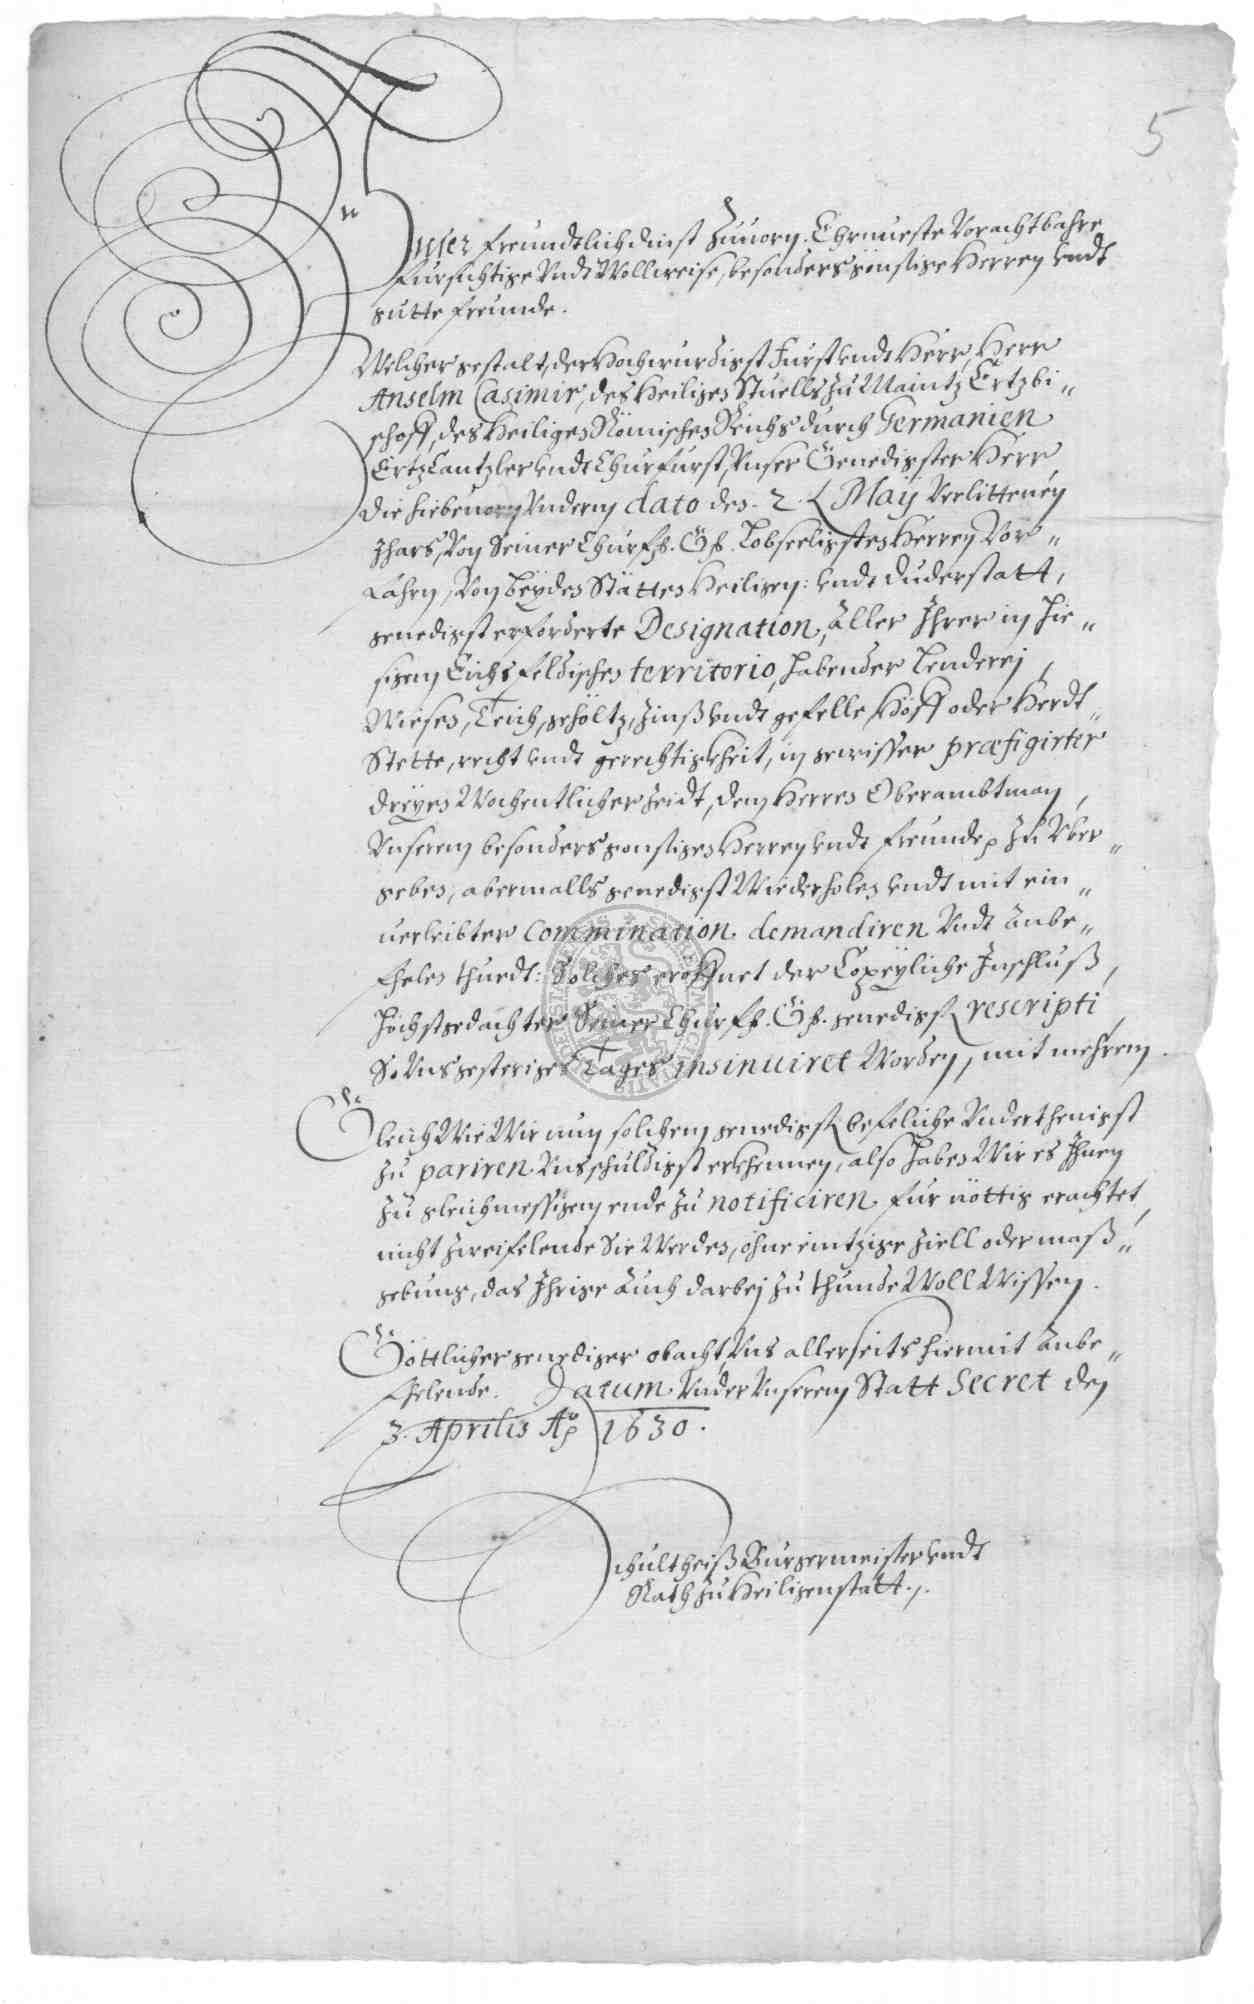 5
Unser freundtlich dinst Zuuorn. Ehrnueste Vorachtbahre
fursichtige Undt Wollweise, besonders gonstige Herren undt
gutte freunde.
Welcher gestalt, der Hochwurdigst Furst undt Herr, Herr
Anselm Casimir, des Heiligen Stuells zu Maintz Ertzbi„
schoff, des Heiligen Römischen Reichs durch Germanien
Ertz Cantzler undt Churfurst, Unser Genedigster Herr,
die hiebeuorn Underm dato den 2. Maij Verlittenen
Jhars, Von Seiner Churf. G. Lobseeligsten Herren Vor„
fahrn, Von beyden Stätten Heiligen: undt Duderstatt,
genedigst erforderte Designation, Aller Ihrer in hie„
sigem Eichsfeldischen territorio, habender Lenderej,
Wiesen, Teich, geholtz, Zinß undt gefelle, Höff oder Herdt„
Stette, recht undt gerechtigkheit, in gewisser præfigirter
dreyen Wochentlicher Zeidt, dem Herren Oberambtman,
Unserem besonders gonstigen Herren undt freunde, Zu Uber„
geben, abermalls genedigst Wiederholen undt mit ein„
uerleibter Commination demandiren Undt Anbe„
fhelen thuedt: Solches eröffnet der Copeyliche Inschluß,
höchstgedachter Seiner Churf. G. genedigst rescripti
So Uns gesterigen Tages insinuiret Worden, mit mehrem.
Gleich Wie Wir nun solchem genedigst befeliche Underthenigst
zu pariren Uns schuldigst erkhennen, also haben Wir es Ihnen
zu gleichmessigem ende zu notificiren fur nöttig erachtet,
nicht Zweifelende Sie Werden, ohne eintzige Ziell oder maß„
gebung, das Ihrige Auch darbej zu thunde Woll Wissen.
Göttlicher genediger obacht, Uns allerseits hiermit Anbe„
fhelende. Datum Under Unserem Statt Secret den
3. Aprilis Ao 1630.
Schultheiß Burgermeister undt
Rath zu Heiligenstatt.